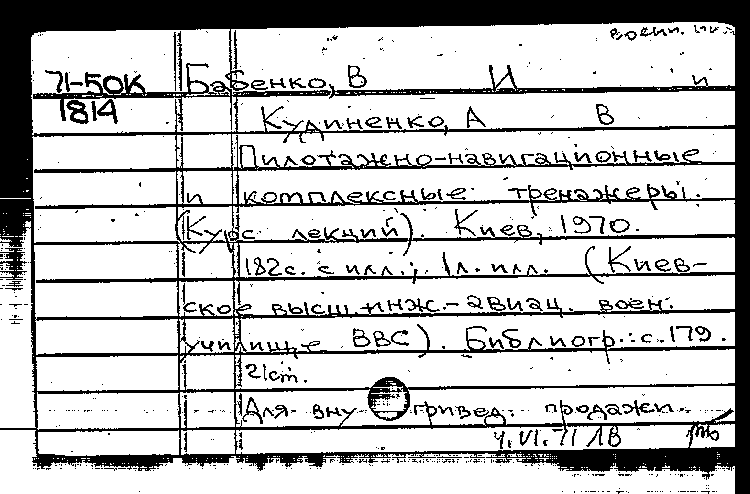 воен.
71-50К Бабенко, В И и
1814 Кудиненко, А В
Пилотажно-навигационные
и комплексные тренажеры.
(Курс лекций). Киев, 1970.
182с. с илл.; 1л. илл. (Киев-
ское высш. инж.-авиац. воен.
училище ВВС). Библиогр.: с. 179.
21cm.
Для вну тривед. продажи.
4.VI.71 ЛВ